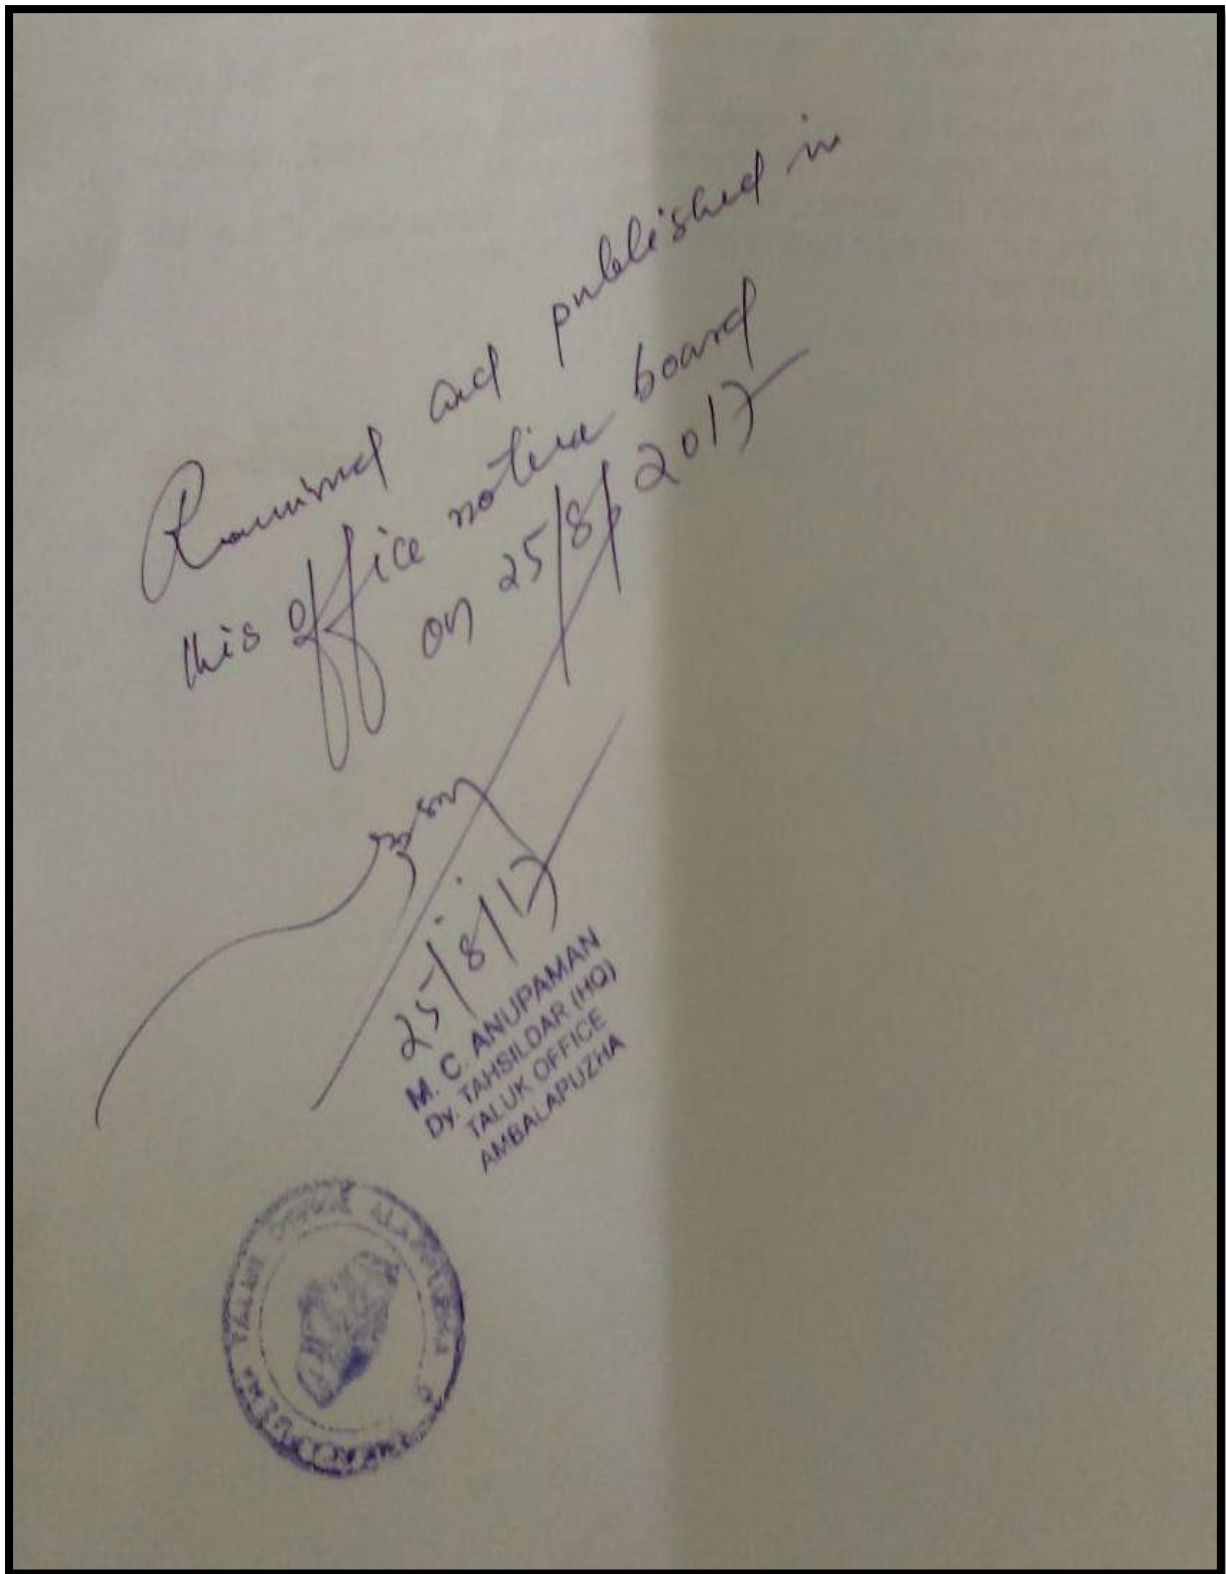 Received and published in
this office notice board
on 25/8/2017
25/8/17
M. C. ANUPAMAN
Dy. TAHSILDAR (HQ)
TALUK OFFICE
AMBALAPUZHA
TALUK OFFICE ALAPPUZHA